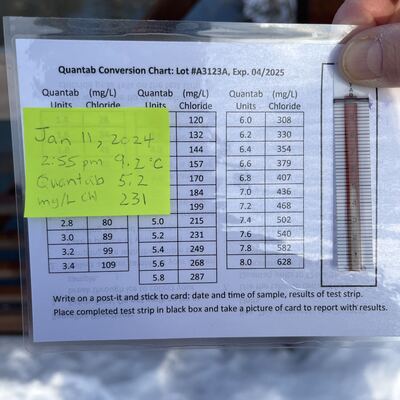 Quantab Conversion Chart: Lot #A3123A, Exp. 04/2025
Quantab (mg/L) Quantab (mg/L) Quantab (mg/L)
Units Chloride Units Chloride Units Chloride
120 6.0 308
132 6.2 330
144 6.4 354
157 6.6 379
170 6.8 407
184 7.0 436
199 7.2 468
2.8 80 5.0 215 7.4 502
3.0 89 5.2 231 7.6 540
3.2 99 5.4 249 7.8 582
3.4 109 5.6 268 8.0 628
5.8 287
Jan 11, 2024
2:55 pm 9.2°C
Quantab 5.2
mg/L Chl 231
Write on a post-it and stick to card: date and time of sample, results of test strip.
Place completed test strip in black box and take a picture of card to report with results.